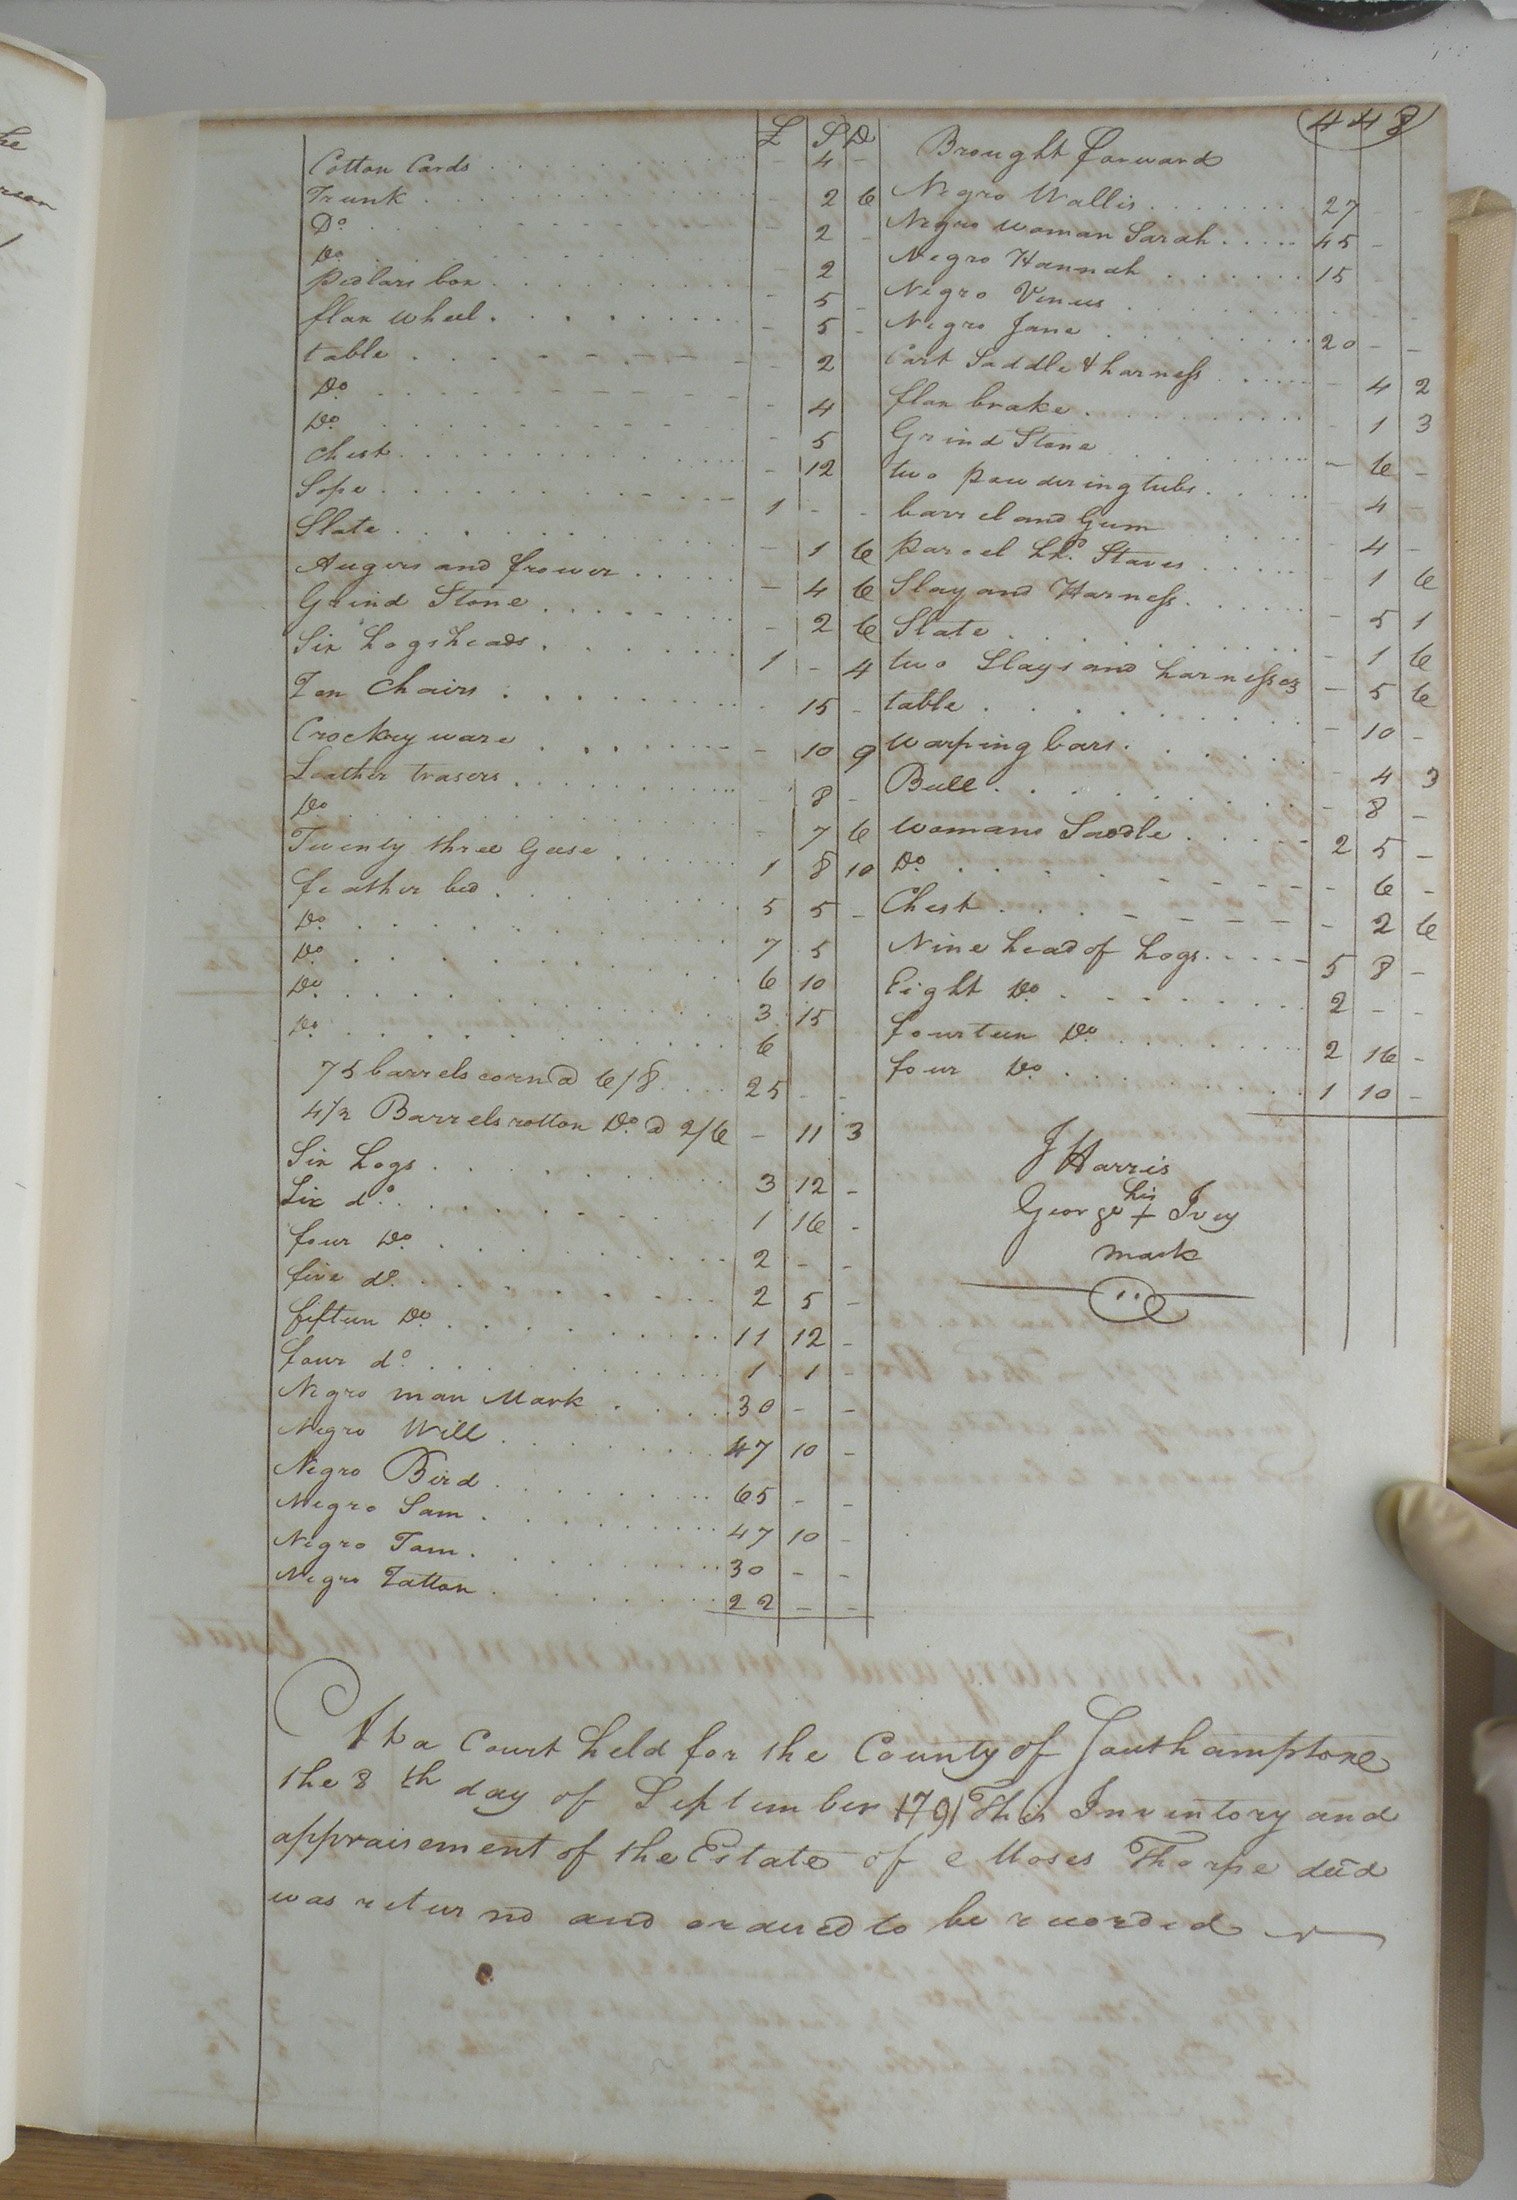 he
rson
448
£ S D
Cotton Cards - 4 -
Trunk - 2 6
Do - 2 -
Do - 2
pedlars box - 5 -
flax wheel - 5 -
table - 2
Do - 4
Do - 5
Chest - 12
Sope 1 - -
Slate - 1 6
Augers and frower - 4 6
Grind Stone - 2 6
Six hogsheads 1 - 4
Ten Chairs 15 -
Crockrey ware - 10 9
Leather trasers - 8 -
Do - 7 6
Twenty three Geese 1 8 10
feather bed 5 5 -
Do 7 5
Do 6 10
Do 3 15
Do 6
75 barrels corn @ 6/8 25 - -
4½ Barrels rotton Do @ 2/6 - 11 3
Six hogs 3 12 -
Six do 1 16 -
four Do 2 - -
five do 2 5 -
fifteen Do 11 12 -
four do 1 1 -
Negro man Mark 30 - -
Negro Will 47 10 -
Negro Bird 65 - -
Negro Sam 47 10 -
Negro Tom 30 - -
Negro Tatton 22 - -
Brought forward
Negro Wallis 27 - -
Negro woman Sarah 45 -
Negro Hannah 15
Negro Venus - -
Negro Jane 20 - -
Cart Saddle & harness - 4 2
flax brake - 1 3
Grind Stone - 6 -
two powdering tubs 4 -
barrel and Gum 4 -
parcel hhd. Staves - 1 6
Slay and Harness - 5 1
Slate - 1 6
two Slays and harnesses - 5 6
table - 10 -
warping bars - 4 3
Bull - 8 -
womans Saddle 2 5 -
Do - 6 -
Chest - 2 6
Nine head of hogs 5 8 -
Eight Do 2 - -
fourteen Do 2 16 -
four Do 1 10 -
J Harris
his
George + Ivey
mark
At a Court held for the County of Southampton
the 8th day of September 1791 This Inventory and
appraisement of the Estate of Moses Thorpe decd
was returnd and ordered to be recorded